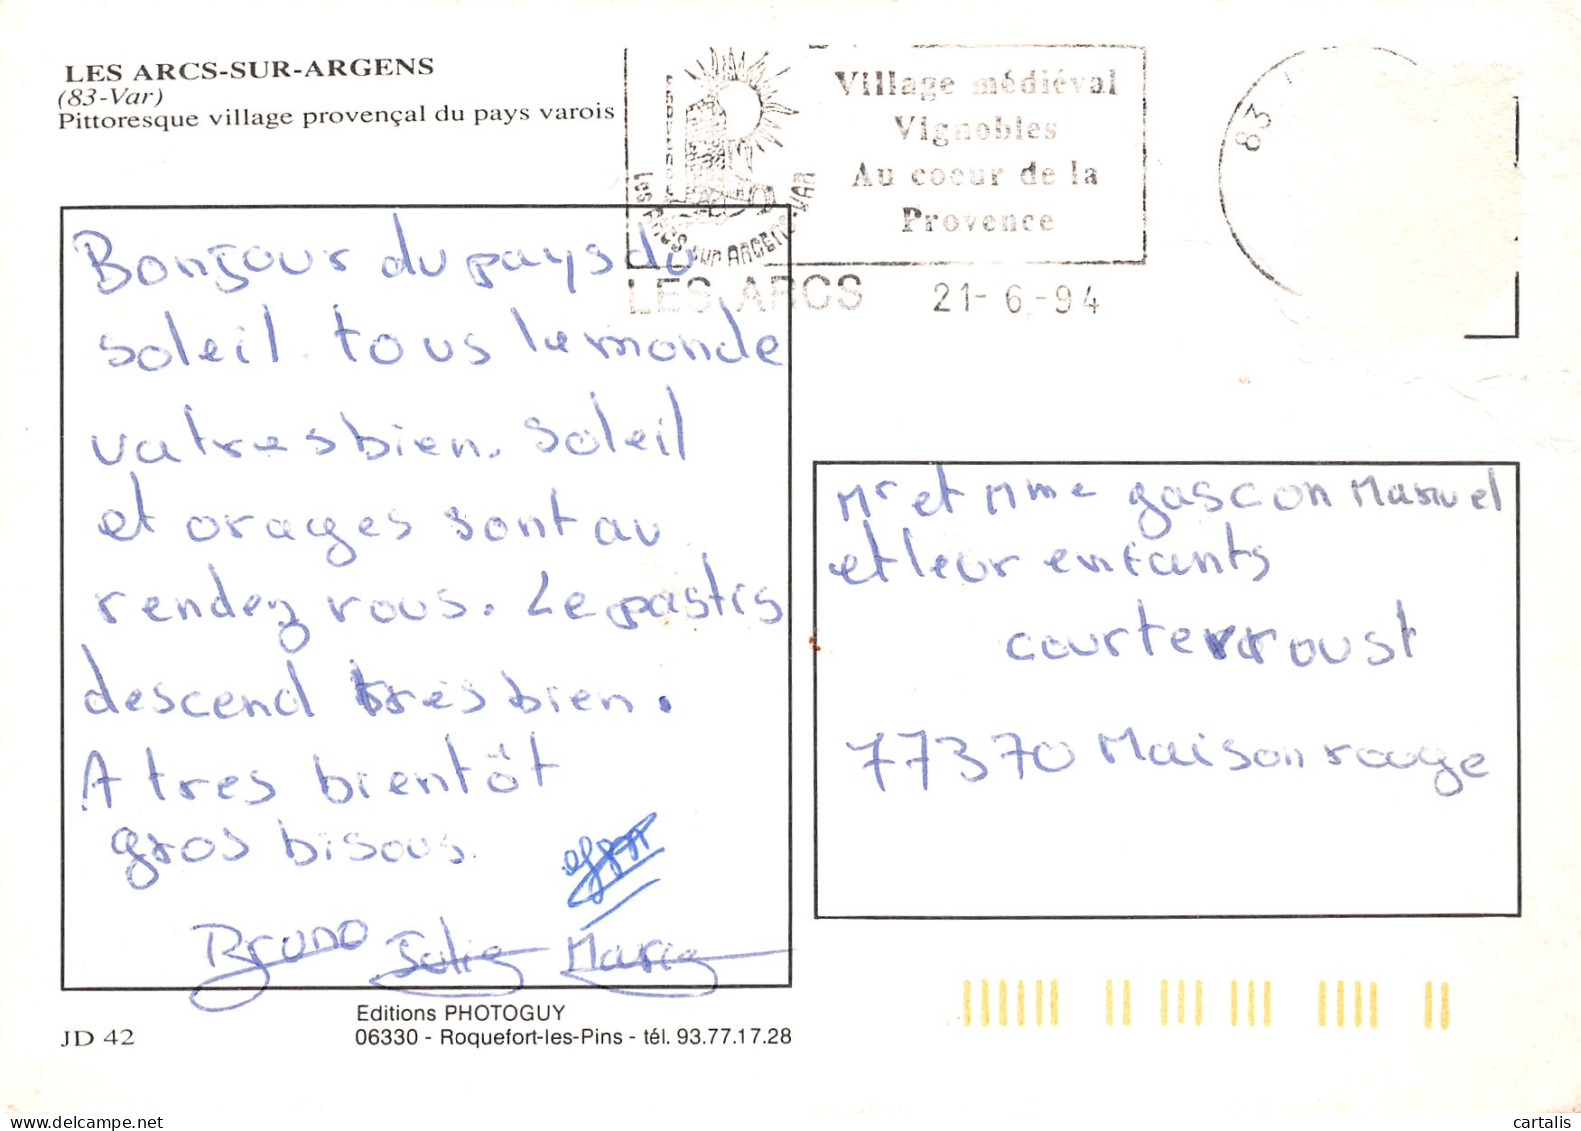 LES ARCS-SUR-ARGENS
(83-Var)
Pittoresque village provençal du pays varois
Village médiéval
Vignobles
Au coeur de la
Provence
les ARCS sur ARGENS-VAR
LES ARCS 21-6-94
83
Bonjour du pays du
soleil. tous le monde
va tres bien. soleil
et orages sont au
rendez vous. Le pastis
descend tres bien.
A tres bientôt
gros bisous.
Bruno Julie Marie
Mr et Mme gascon Manuel
et leur enfants
courterroust
77370 Maison rouge
Editions PHOTOGUY
JD 42
06330 - Roquefort-les-Pins - tél. 93.77.17.28
cartalis